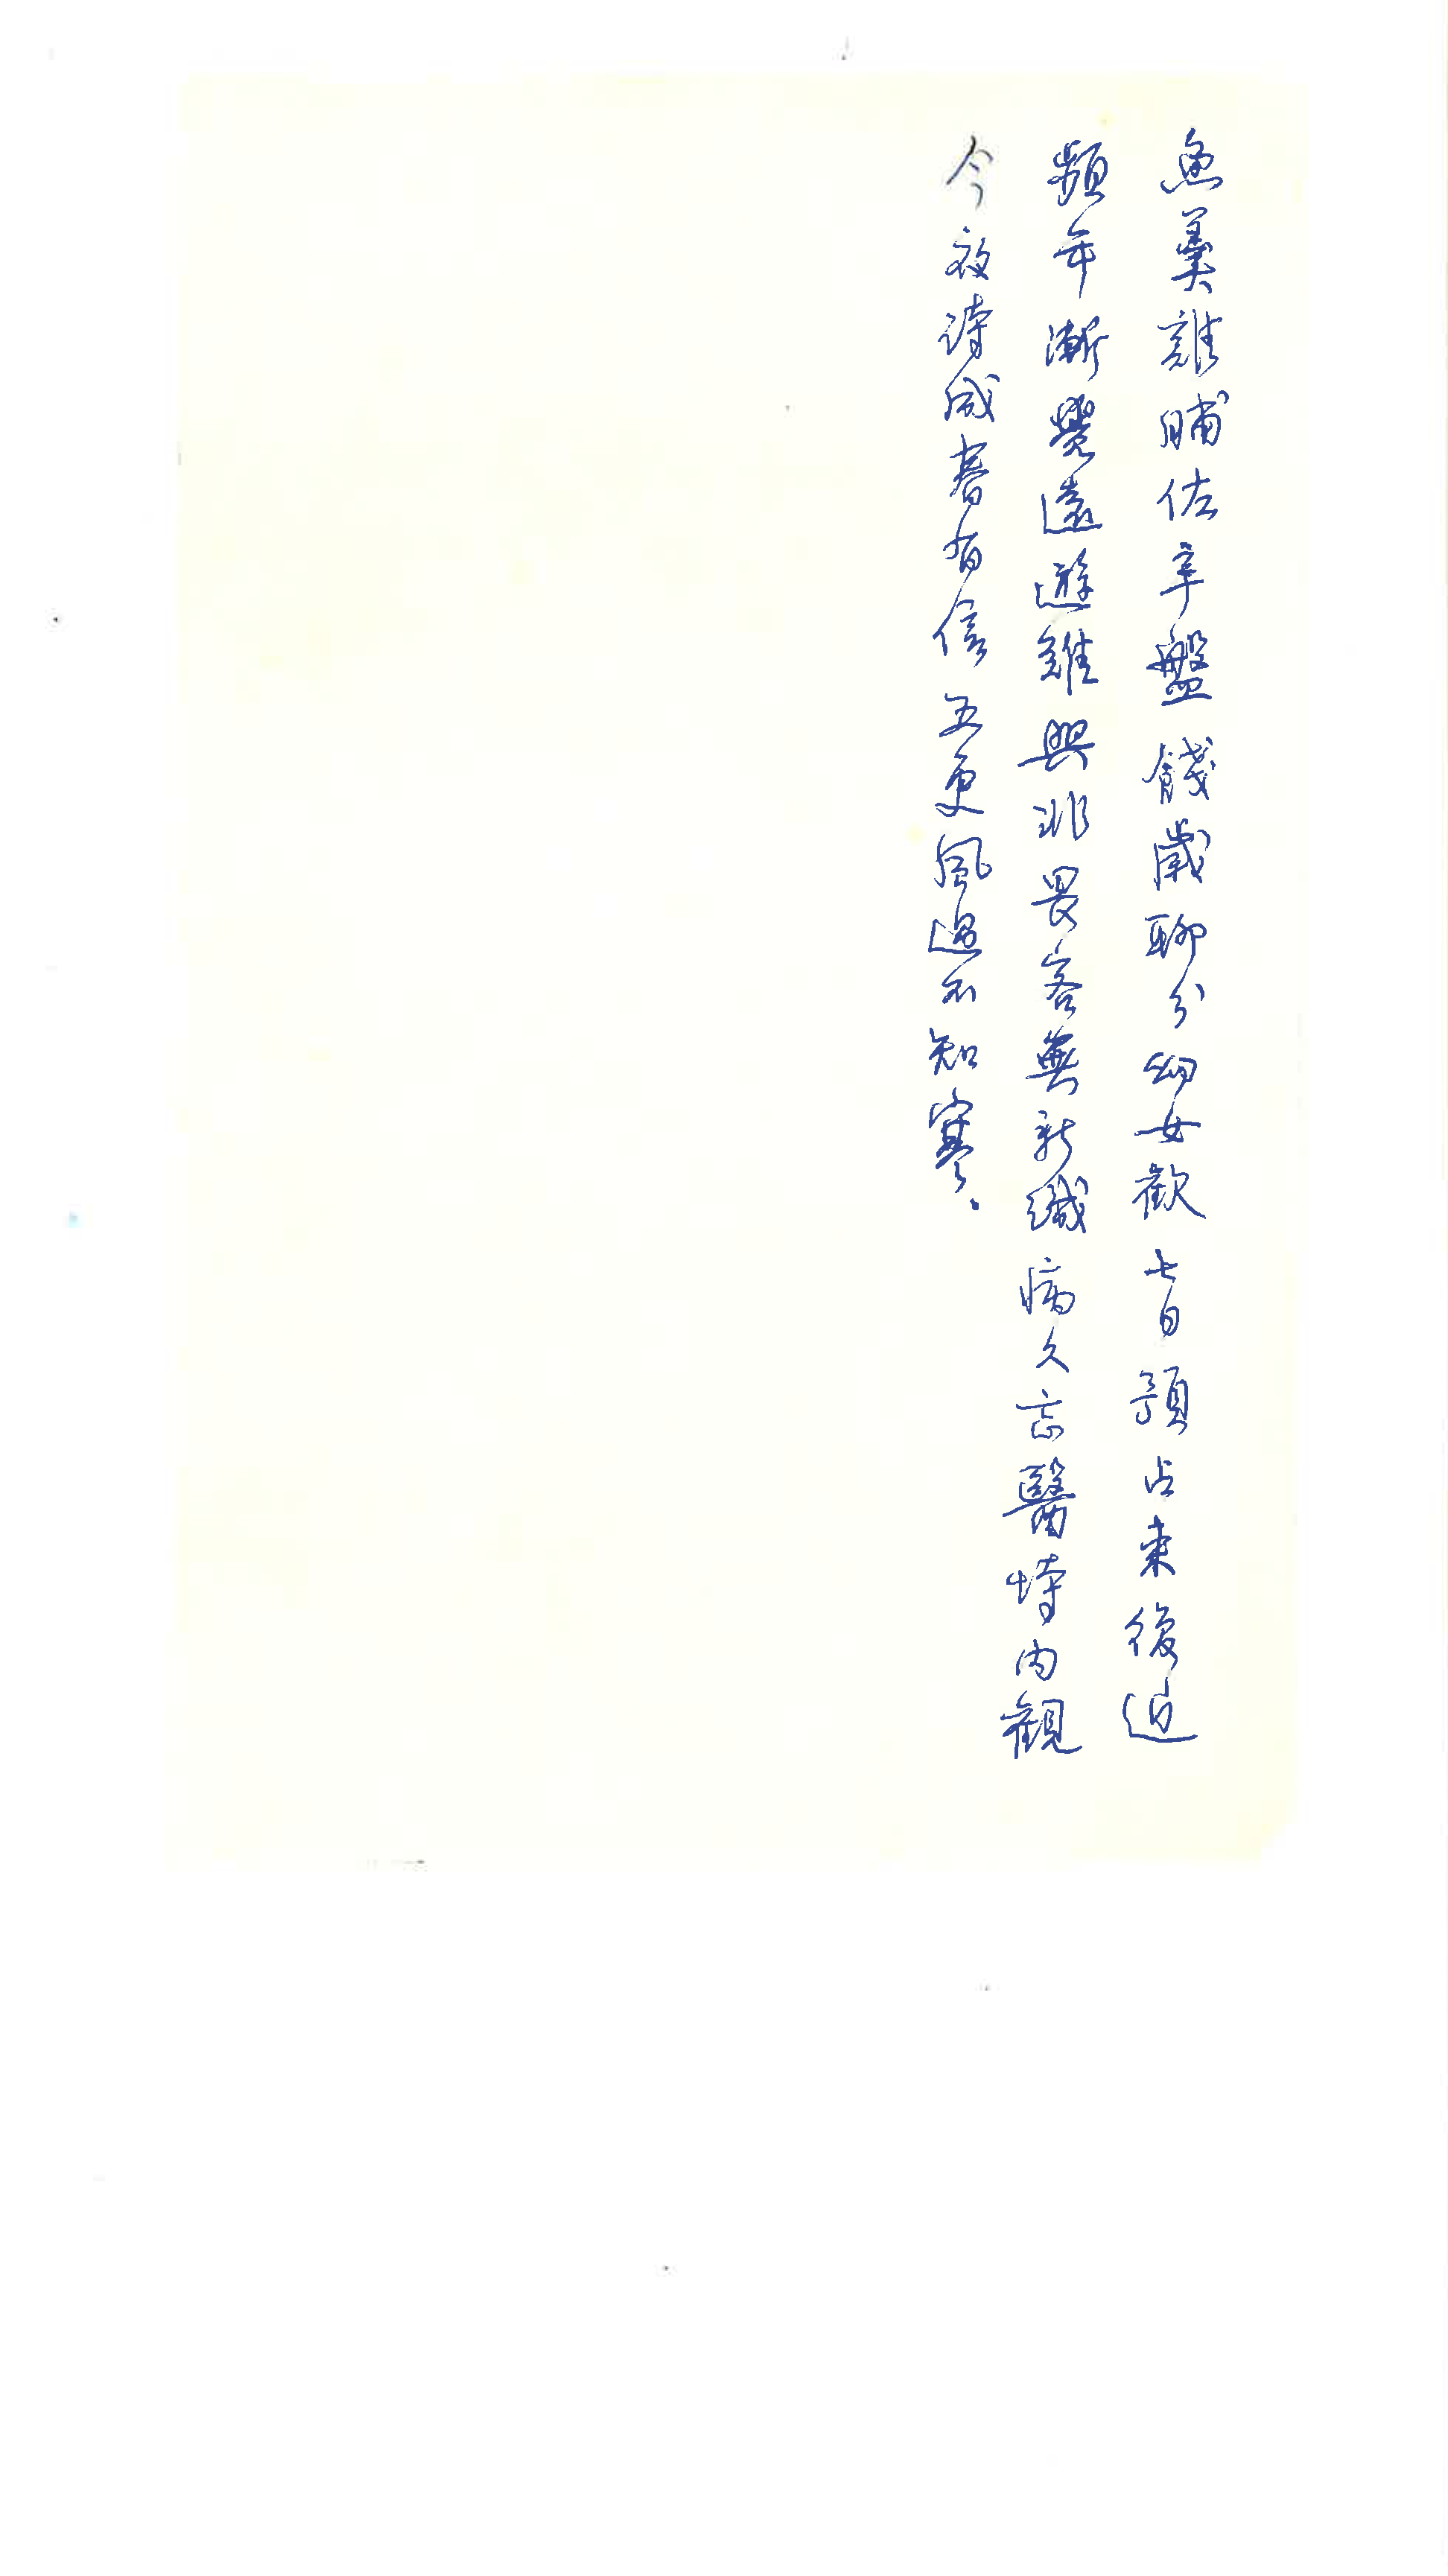 魚羹雞脯佐辛盤餞歲聊分幼女歡七日預占來復近
頻年漸覺遠遊難興非畏客無新識病久忘醫恃內觀
今夜詩成春有信五更風過不知寒。